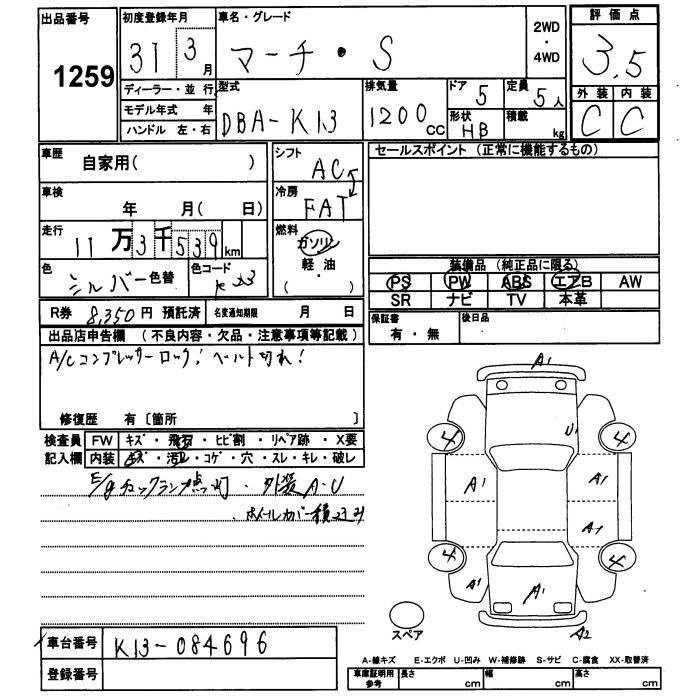 出品番号
1259
初度登録年月
31 3月
車名・グレード
マーチ・S
2WD
・
4WD
評価点
3.5
外装 内装
C C
ディーラー・並行
モデル年式 年
ハンドル 左・右
型式
DBA-K13
排気量
1200 CC
ドア 5
形状 HB
定員 5人
積載 kg
車歴
自家用( )
車検
年 月( 日)
走行
11万3千539km
色
シルバー 色替
色コード
K23
シフト
AC
冷房
FAT
燃料
ガソリン
軽・油
( )
セールスポイント (正常に機能するもの)
装備品 (純正品に限る)
PS PW ABS エアB AW
SR ナビ TV 本革
R券 8,350円 預託済
名変通知期限 月 日
保証書
有・無
後日品
出品店申告欄 (不良内容・欠品・注意事項等記載)
A/Cコンプレッサーロック! ベルト切れ!
修復歴 有〔箇所 〕
検査員
記入欄
FW キズ・飛石・ヒビ割・リペア跡・X要
内装 キズ・汚れ・コゲ・穴・スレ・キレ・破レ
E/gチェックランプ点灯・外装A・U
・ホイルカバー積込み
A1
U1
4 4
A1 A1
A1
4 4
A1 A1 A1
A2
スペア
車台番号
K13-084696
登録番号
A-線キズ E-エクボ U-凹み W-補修跡 S-サビ C-腐食 XX-取替済
車庫証明用
参考
長さ cm
幅 cm
高さ cm